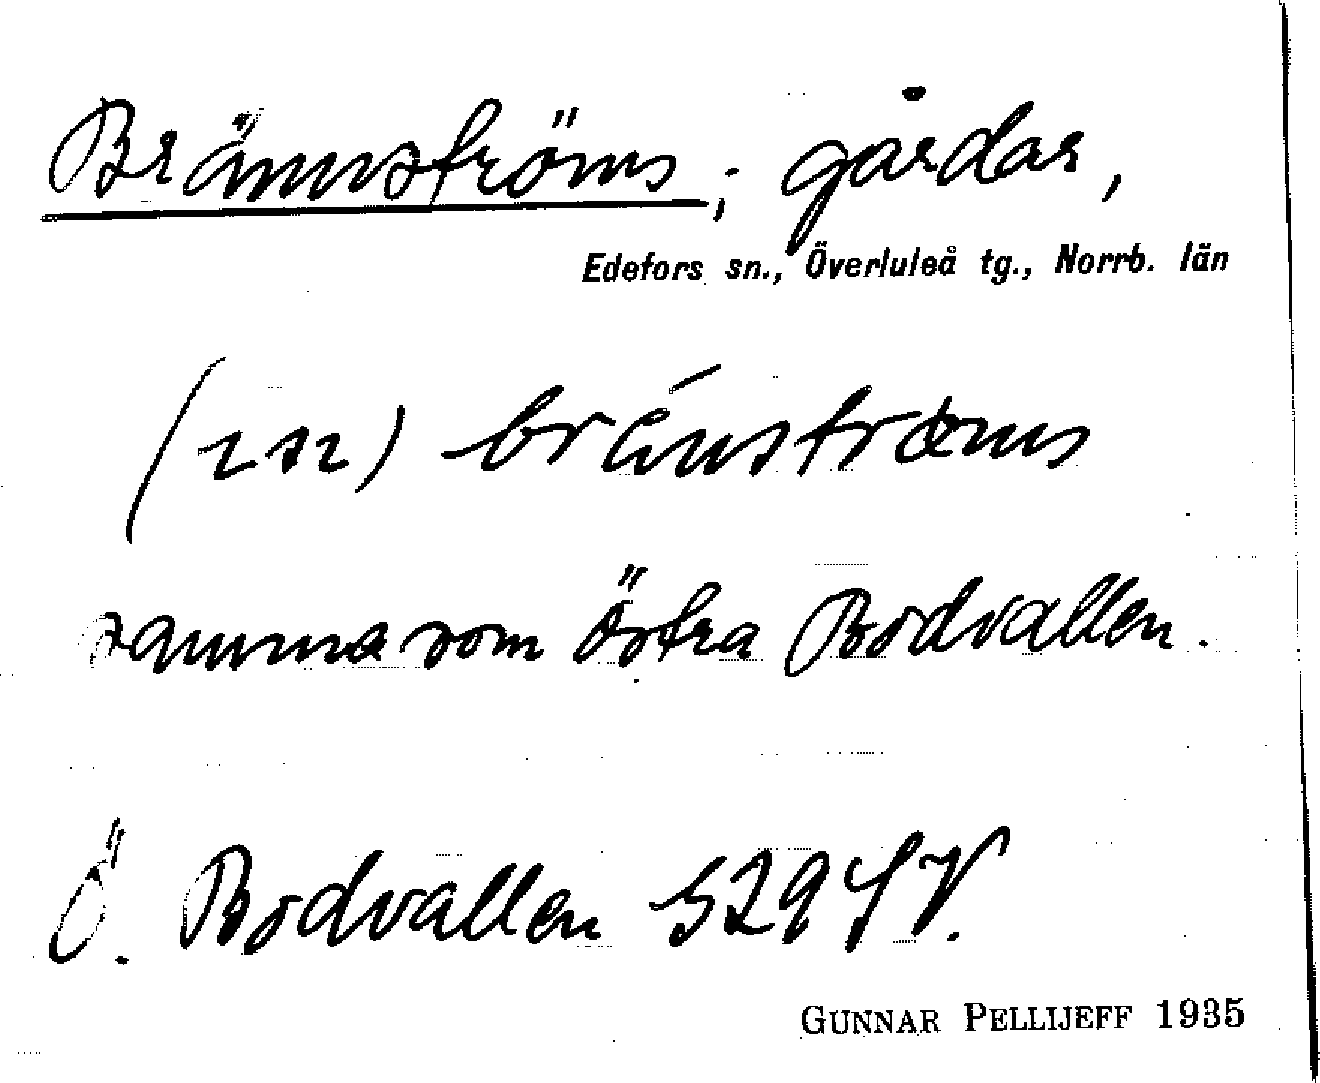 Brännströms, gårdar,
Edefors sn., Överluleå tg., Norrb. län
bränstrœms
samma som Östra Bodvallen.
Ö. Bodvallen 529 SV.
GUNNAR PELLIJEFF 1935